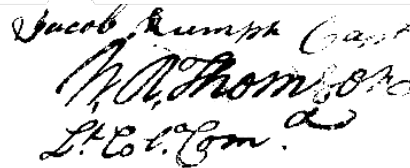 Jacob Rumph Capt
W. R. Thomson
Lt. Col. Com.